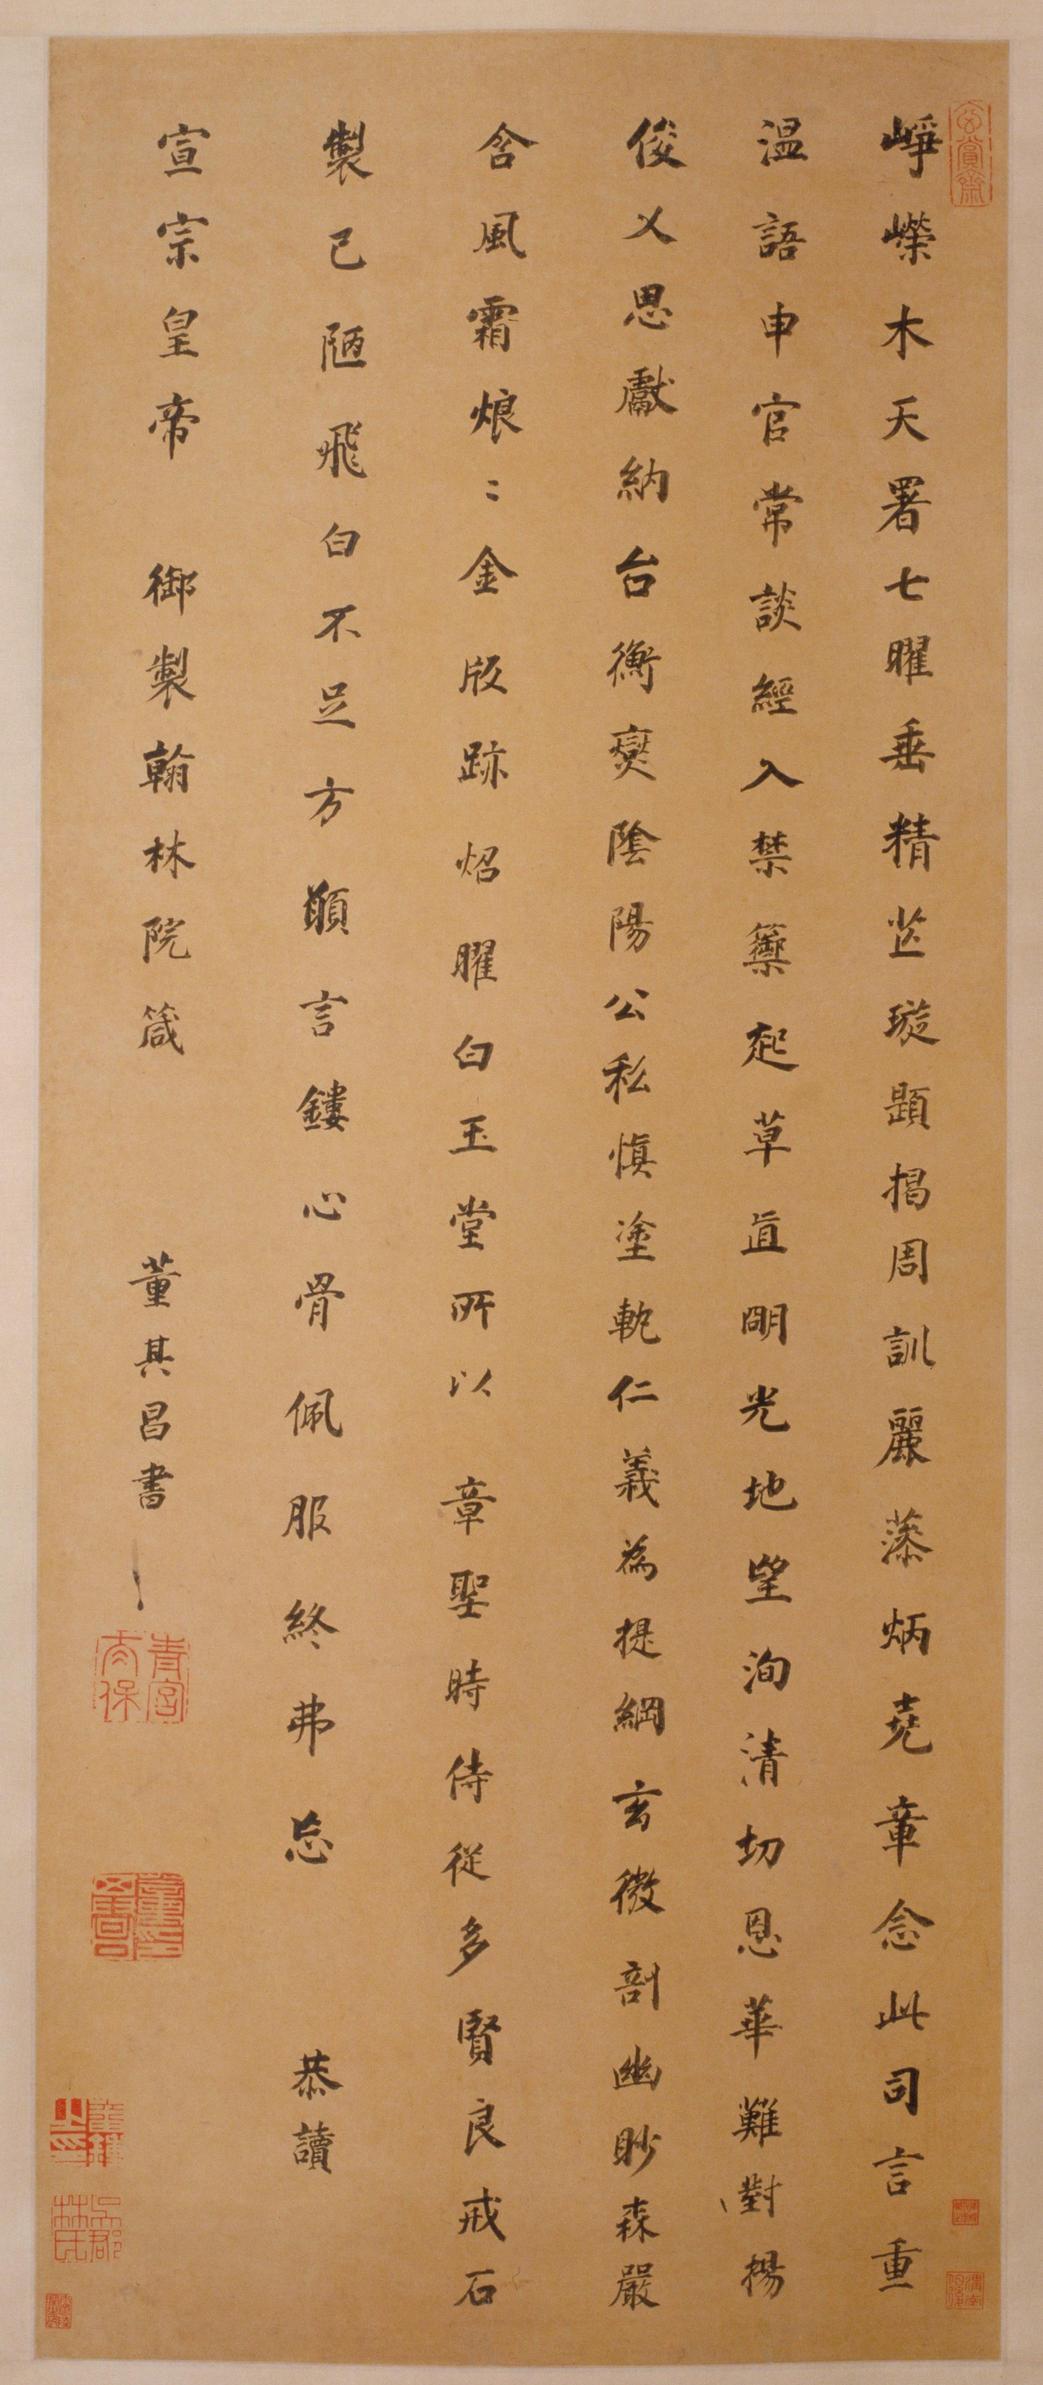 崢嶸木天署七曜垂精芒璇題揭周訓麗藻炳堯章念此司言重
温語申官常談經入禁籞起草直明光地望洵清切恩華難對揚
俊乂思獻納台衡爕陰陽公私慎塗軌仁義為提綱玄微剖幽眇森嚴
含風霜烺〻金版跡炤曜白玉堂所以章聖時侍從多賢良戒石
製已陋飛白不足方願言鏤心骨佩服終弗忘 恭讀
宣宗皇帝 御製翰林院箴 董其昌書
玄賞齋
青宮太保